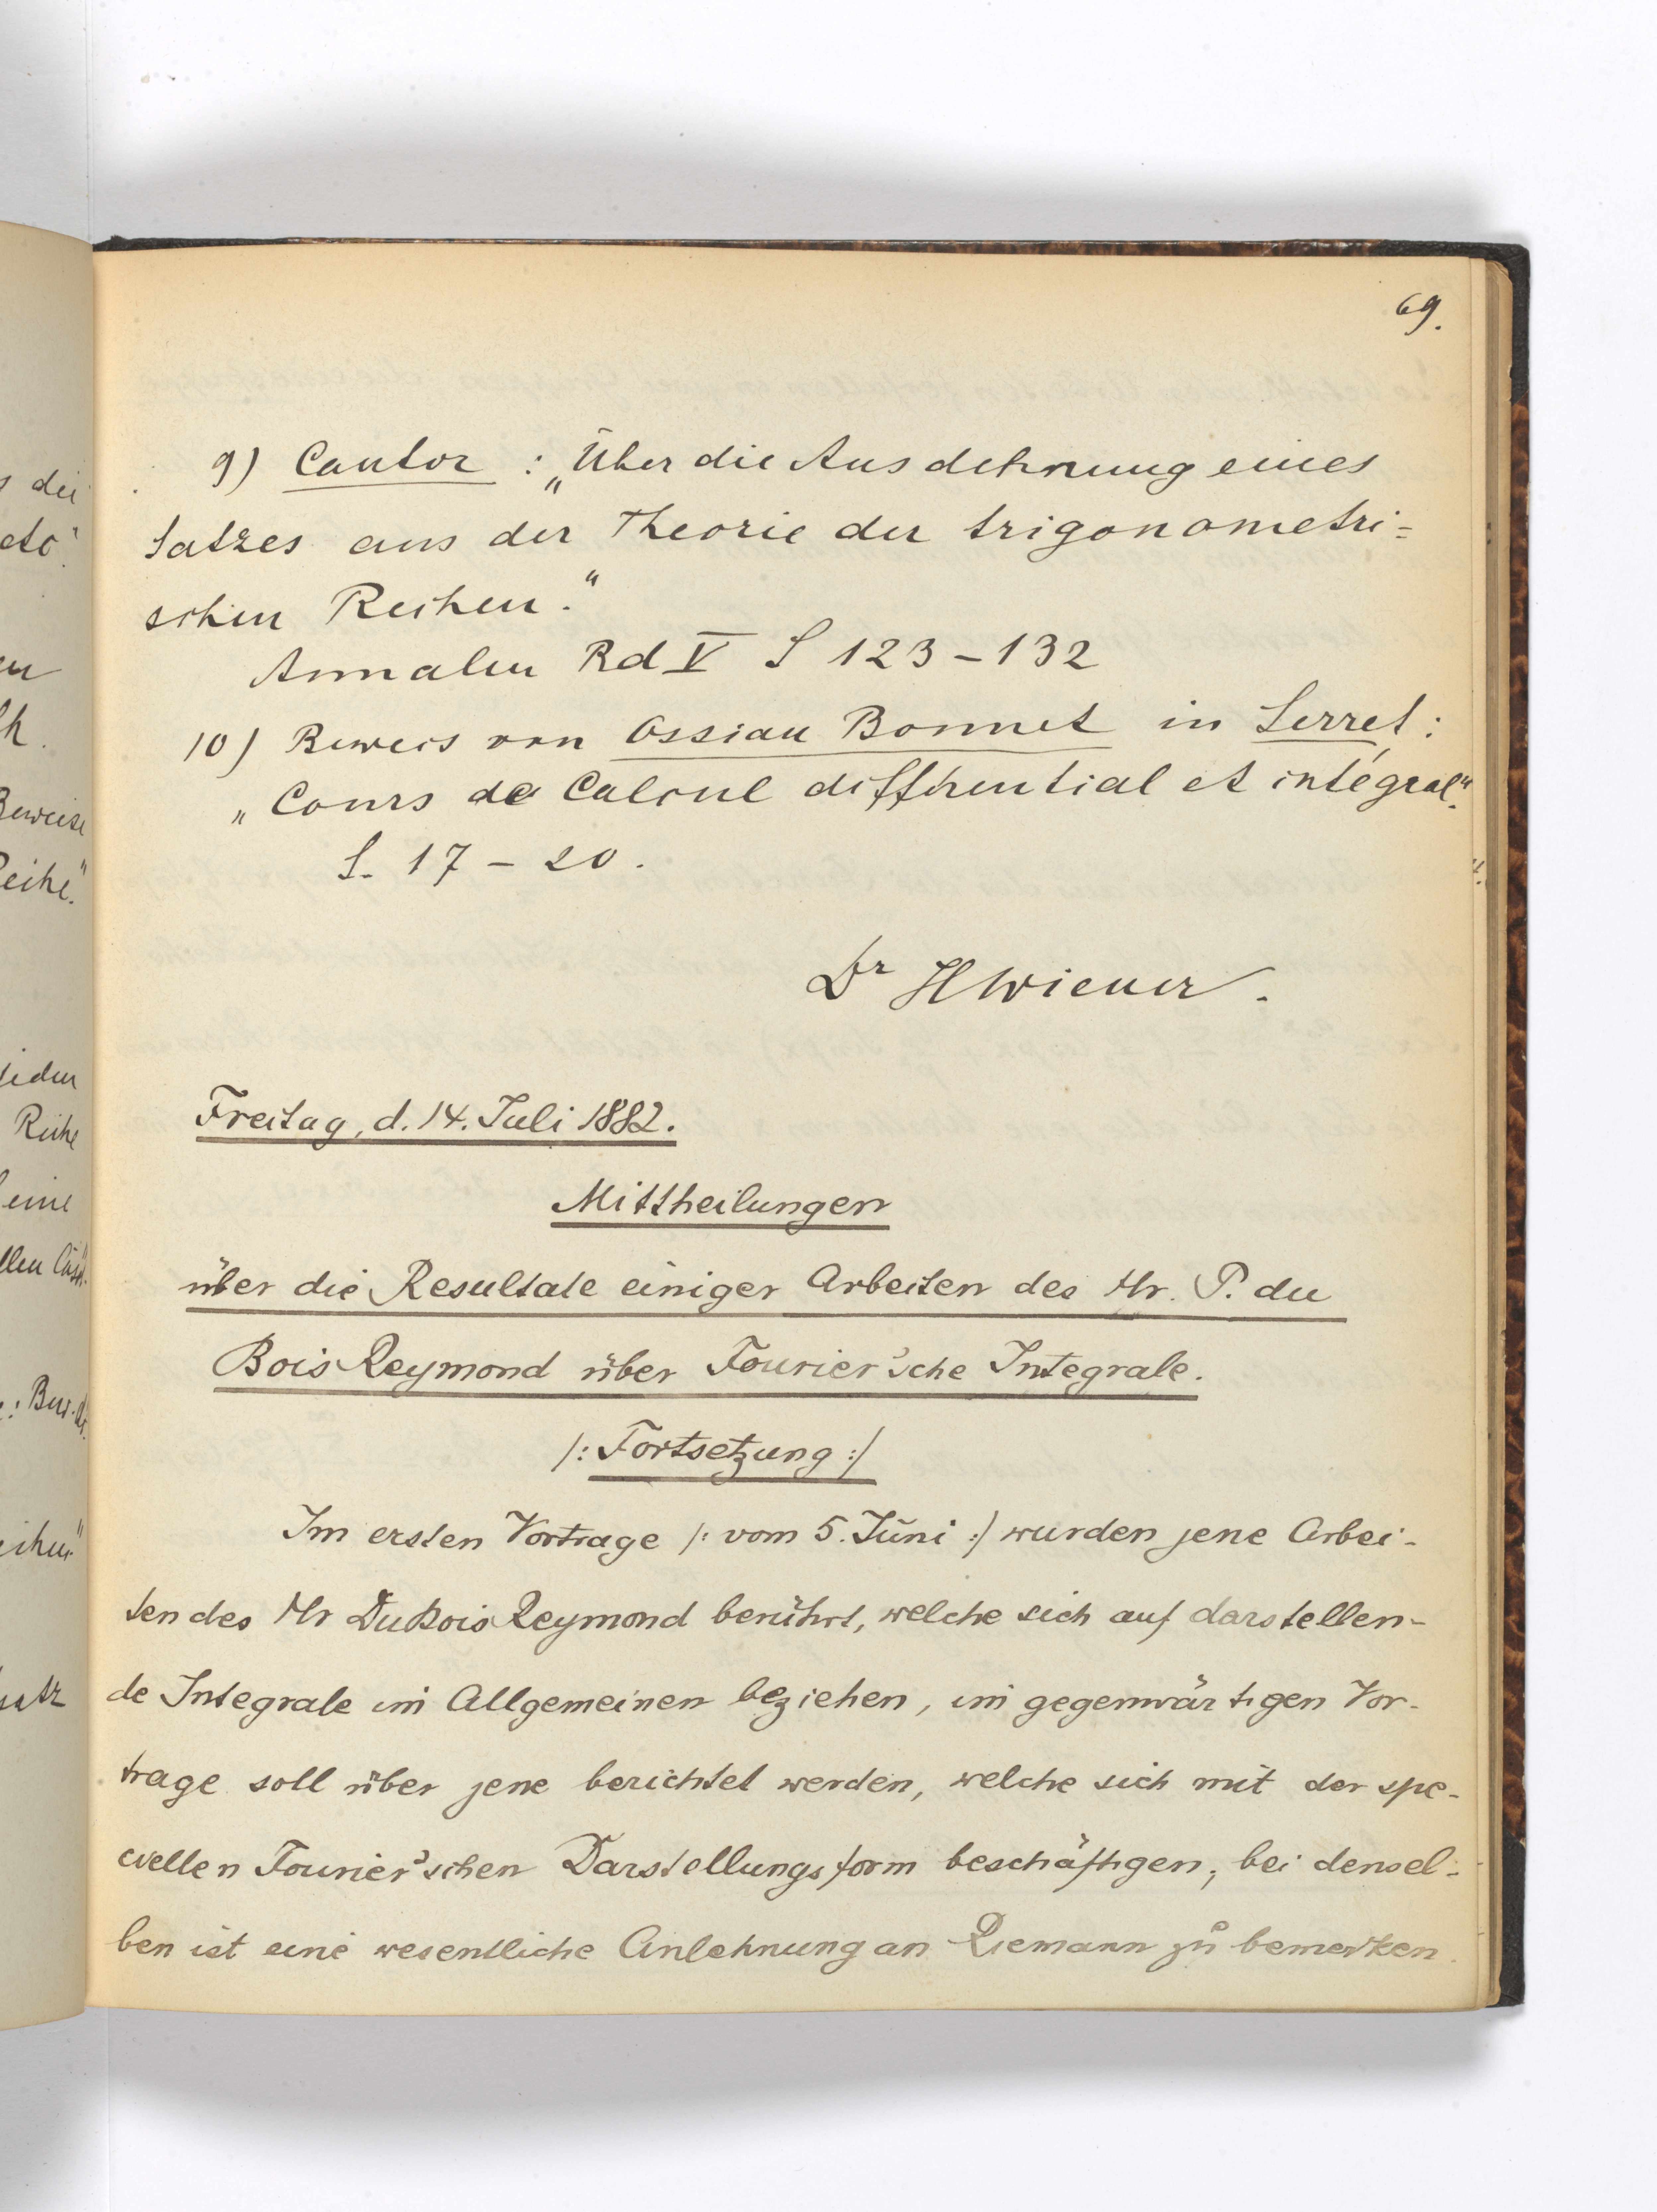 69.
9) Cantor : „Über die Ausdehnung eines
Satzes aus der Theorie der trigonometri=
schen Reihen."
Annalen Bd V S 123 – 132
10) Beweis von Ossian Bonnet in Serret:
„Cours de Calcul différential et intégral".
S. 17 – 20.
Dr HWiener.
Freitag, d. 14. Juli 1882.
Mittheilungen
über die Resultate einiger Arbeiten des Hr. P. du
Bois Reymond über Fourier'sche Integrale.
/: Fortsetzung :/
Im ersten Vortrage /: vom 5. Juni :/ wurden jene Arbei-
ten des Hr DuBois Reymond berührt, welche sich auf darstellen-
de Integrale im Allgemeinen beziehen, im gegenwärtigen Vor-
trage soll über jene berichtet werden, welche sich mit der spe-
ciellen Fourier'schen Darstellungsform beschäftigen; bei densel-
ben ist eine wesentliche Anlehnung an Riemann zu bemerken.